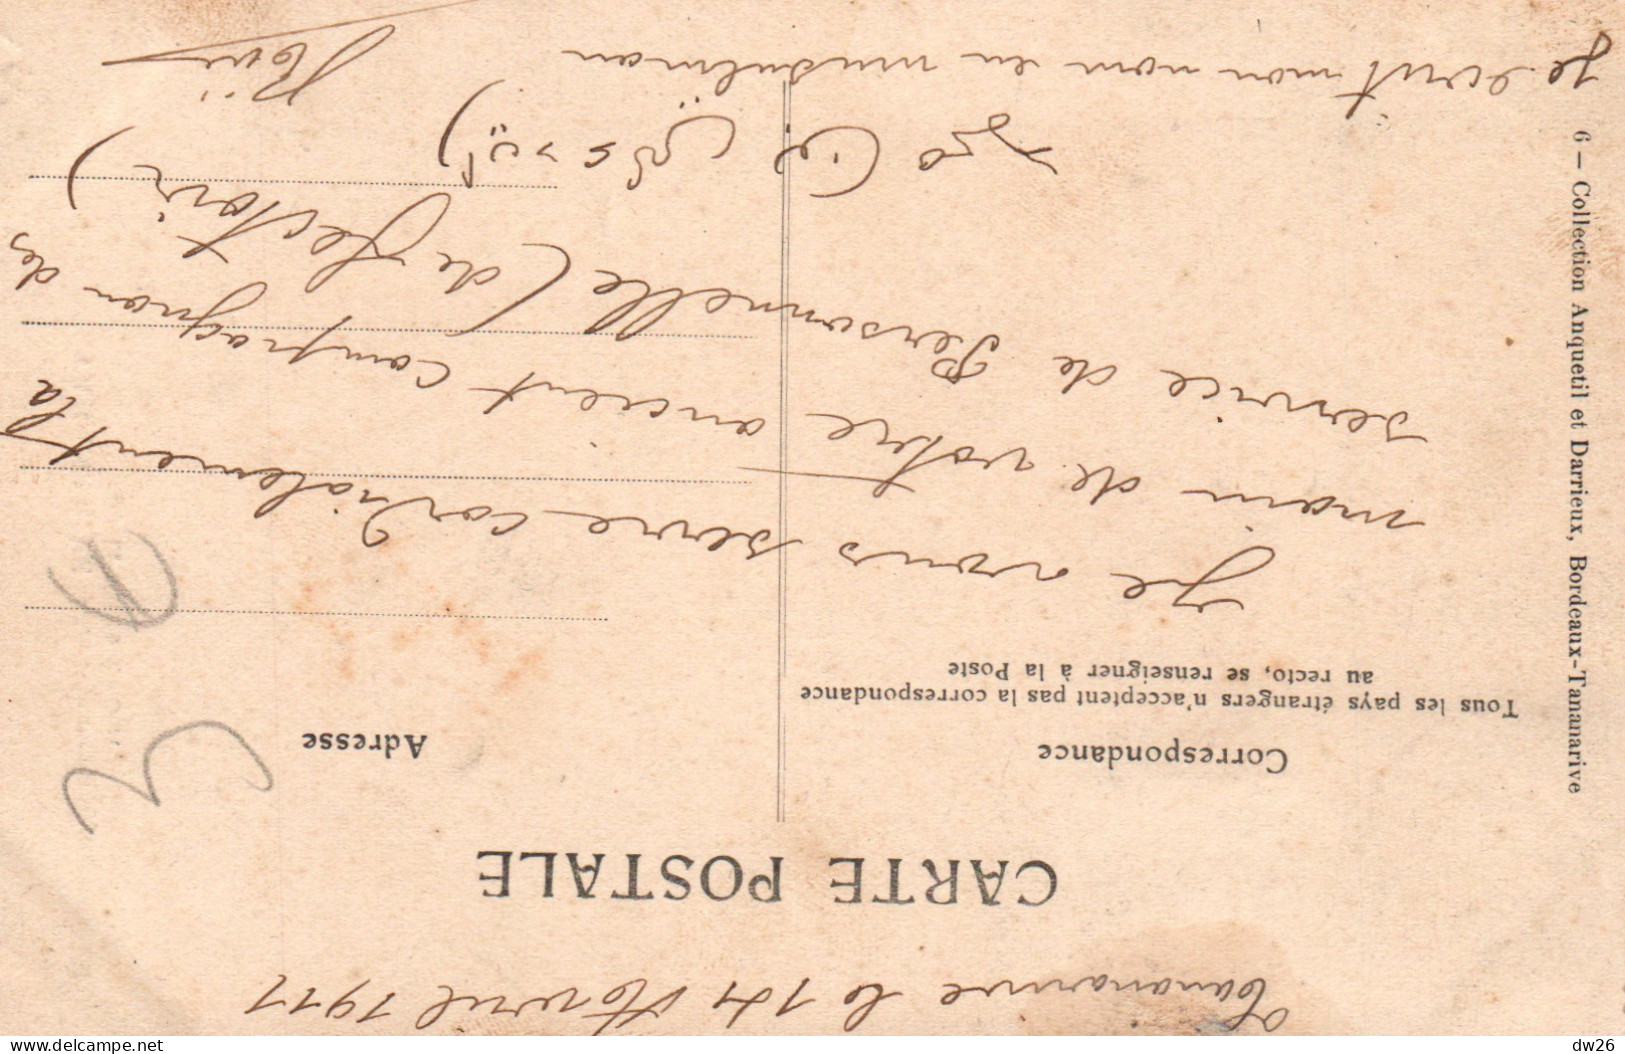 Tananarive le 14 Avril 1911
CARTE POSTALE
Correspondance
Adresse
Tous les pays étrangers n'acceptent pas la correspondance
au recto, se renseigner à la Poste
Je vous serre cordialement la
main de votre ancient compagnon des
service de Personnelle (de flectoir)
Je ecrit mon nom en musulman
6 — Collection Anquetil et Darrieux, Bordeaux-Tananarive
3
(1)
delcampe.net
dw26